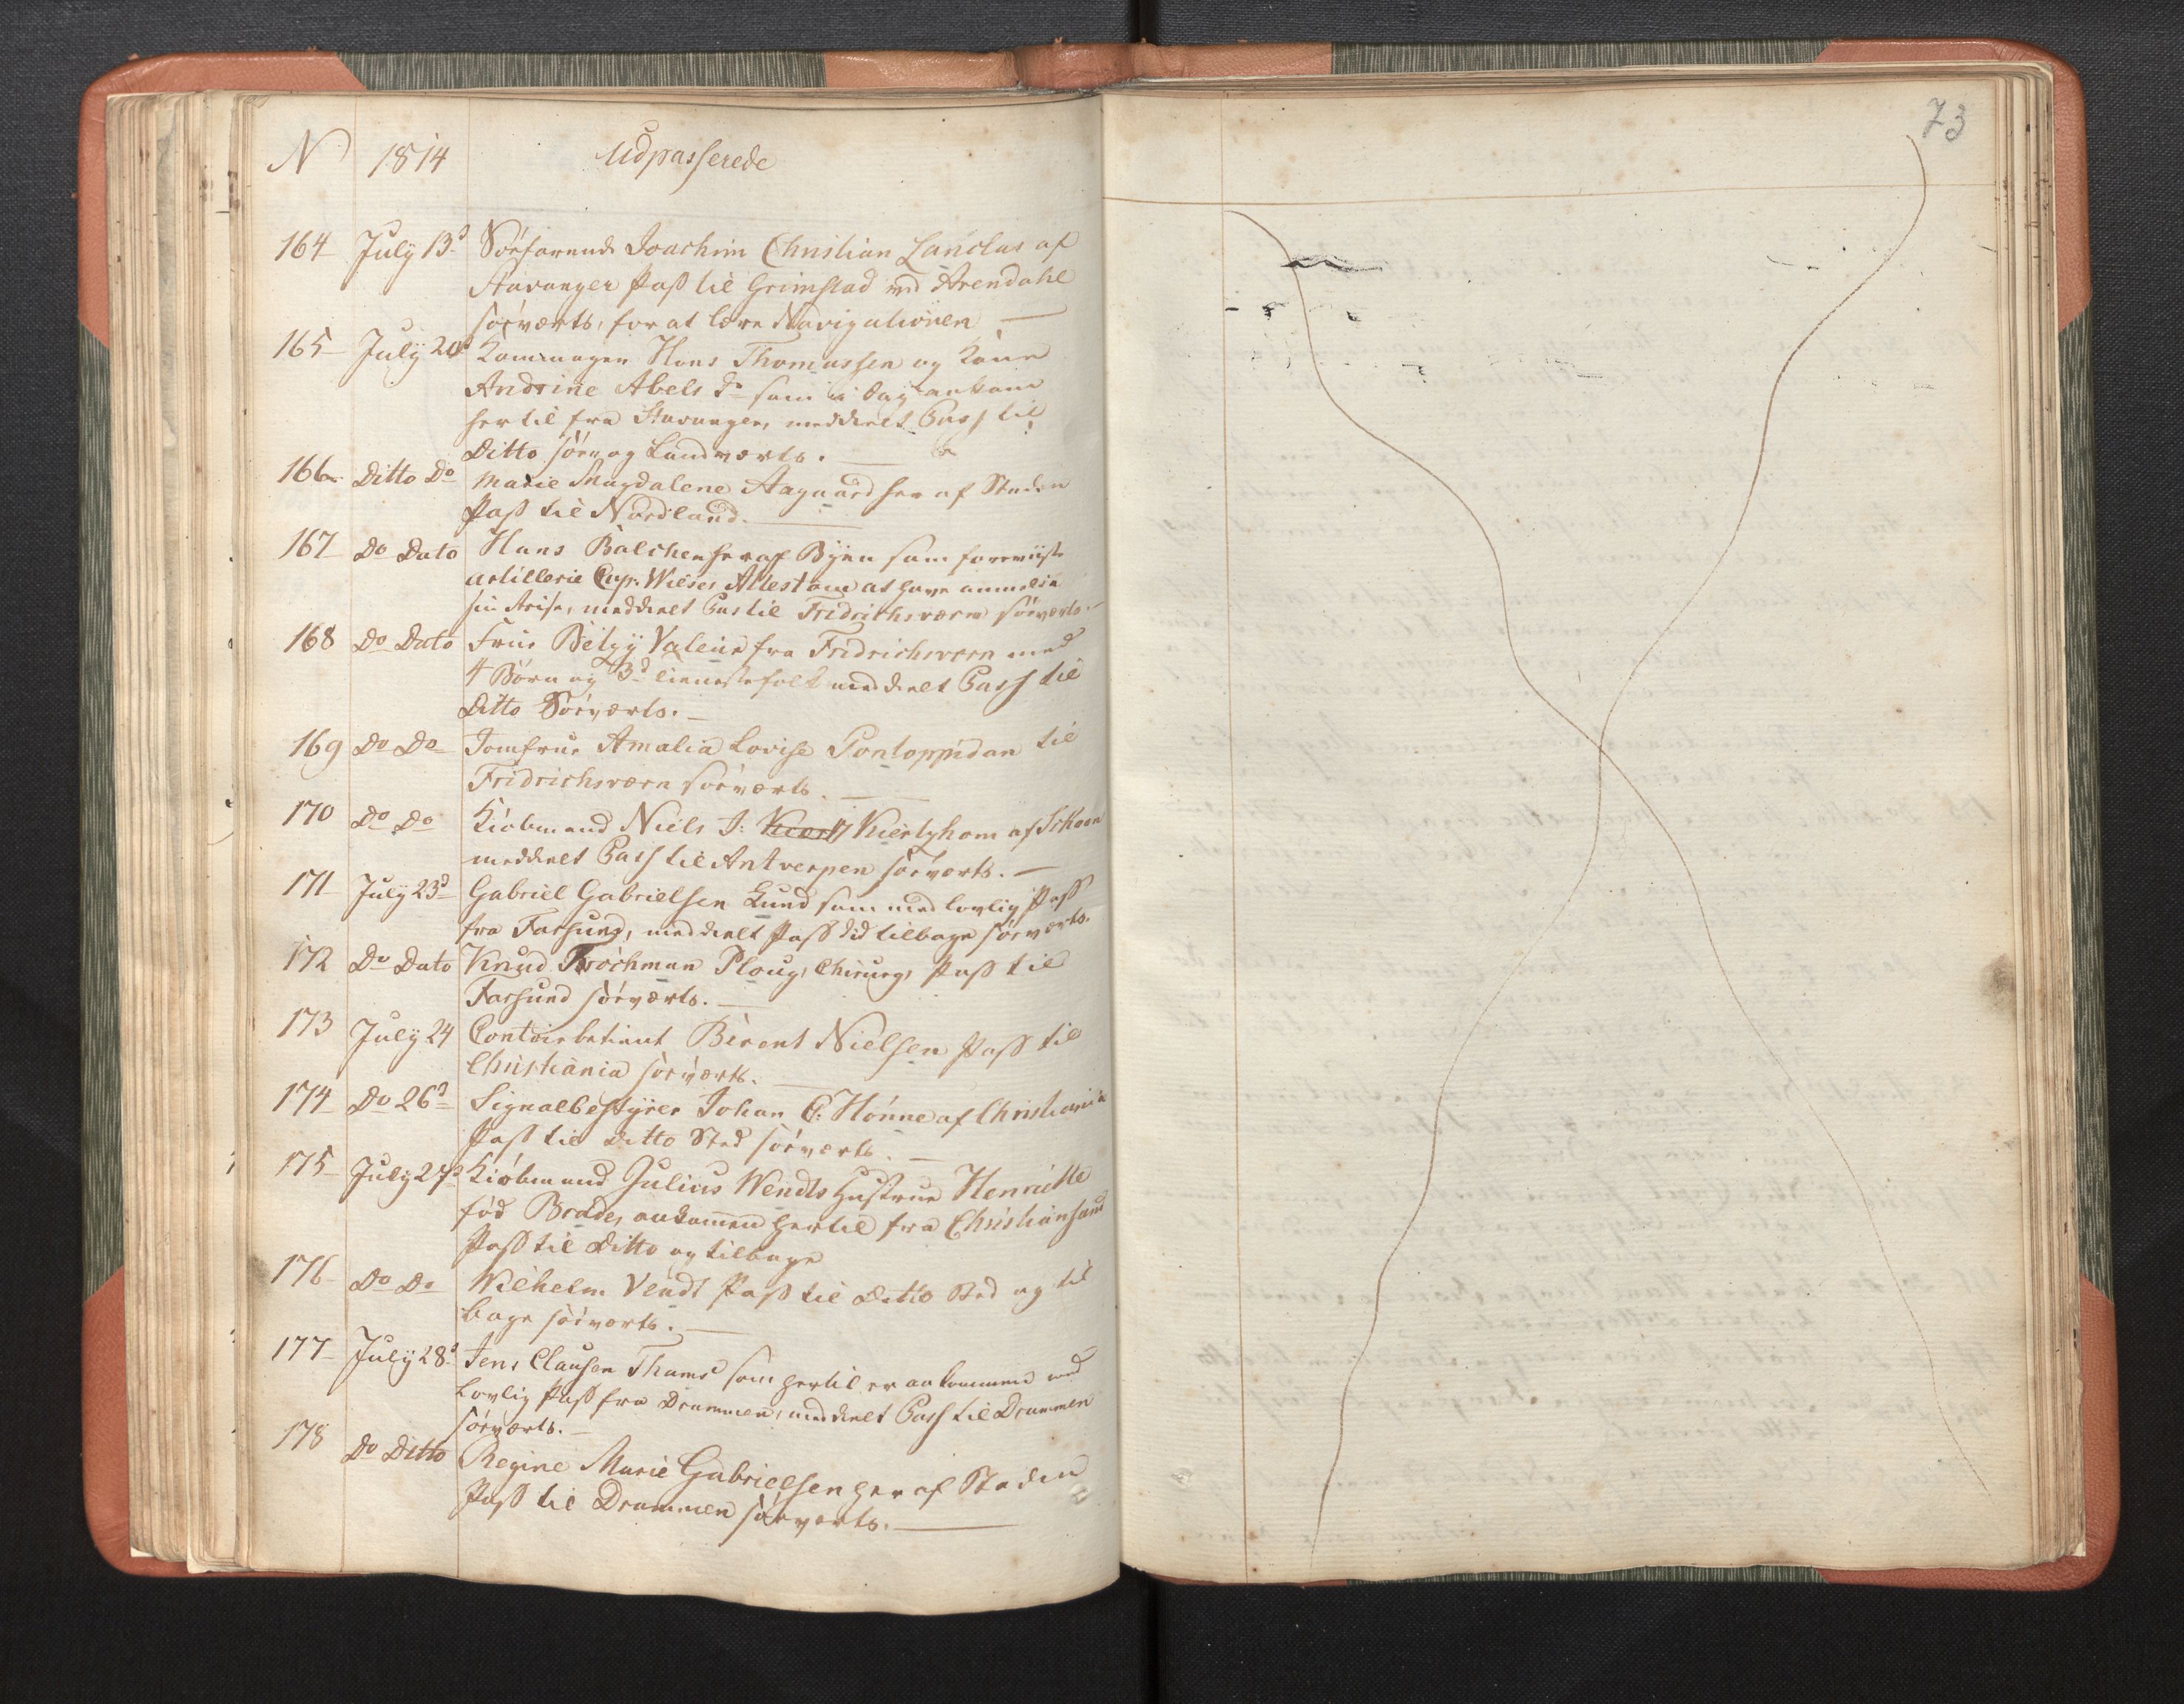 73
N 1814 Udpasserede
164 July 13d Söefarende Joachim Christian Lanclus af
Stavanger Pass til Grimstad ved Arendahl
söeværts, for at lære Navigationen
165 July 20d Hans Thomassen og Kone
Andrine Abels Dr som i Dag ankom
hertil fra Stavanger, meddeelt Pass til
Ditto söe og Landværts.
166 Ditto Do Marie Magdalene Aagaard her af Staden
Pass til Nordland.
167 Do Dato Hans Balchen her af Byen som foreviiste
artillerie Cap. Wilses Attest om at have anmeldt
sin Reise, meddeelt Pas til Fridrichsværn söeværts.
168 Do Dato Frue Betzy Valeur fra Fridrichsværn med
4 Börn og 3d tienestefolk meddeelt Pass til
Ditto Söeværts.
169 Do Do Jomfrue Amalia Lovise Pontoppidan til
Fridrichsværn söeværts.
170 Do Do Kiöbmand Niels J: Kierlyhom af Skeen
meddeelt Pass til Antverpen söeværts.
171 July 23d Gabriel Gabrielsen Lund som med lovlig Pass
fra Farsund, meddeelt Pass did tilbage söeværts.
172 Do Dato Knud Tröchman Ploug, Chirurg, Pass til
Farsund söeværts.
173 July 24 Contoirbetient Berent Nielsen Pass til
Christiania söeværts.
174 Do 26d Signalbestyrer Johan C: Hönne af Christiania
Pass til Ditto Sted söeværts.
175 July 27d Kiöbmand Julius Wendts Hustrue Henriette
föd Brade, ankommen hertil fra Christiansand
Pass til Ditto og tilbage
176 Do Do Wilhelm Vendt Pass til Ditto Sted og til
bage söeværts.
177 July 28d Jens Clausen Thams som hertil er ankommen med
Lovlig Pass fra Drammen, meddeelt Pass til Drammen
söeværts.
178 Do Ditto Regine Marie Gabrielsen her af Staden
Pass til Drammen söeværts.